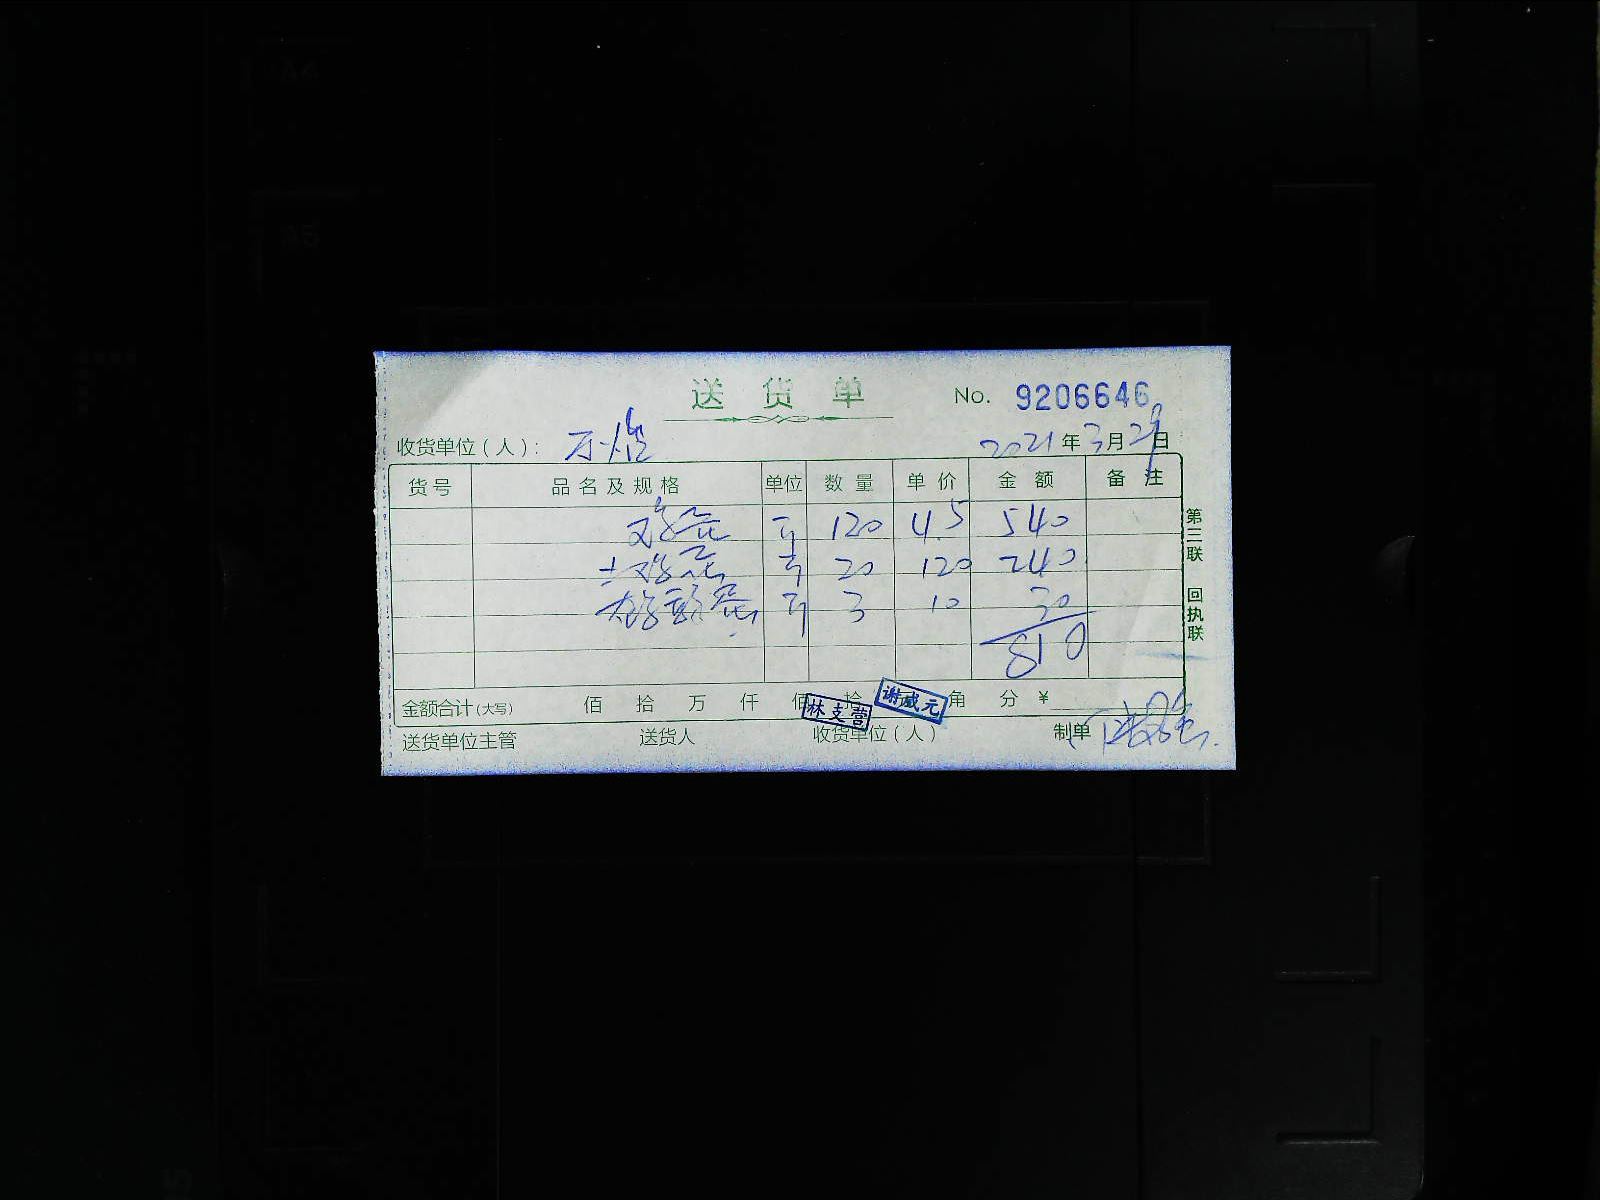 送货单 No. 9206646
收货单位（人）： 万 2021年3月29日
货号 品名及规格 单位 数量 单价 金额 备注
鸡蛋 斤 120 4.5 540
土鸡蛋 斤 20 120 240
斤 3 10 30
810
金额合计(大写) 佰 拾 万 仟 佰 拾 角 分 ¥
林支营 谢威元
送货单位主管 送货人 收货单位（人） 制单
第三联 回执联